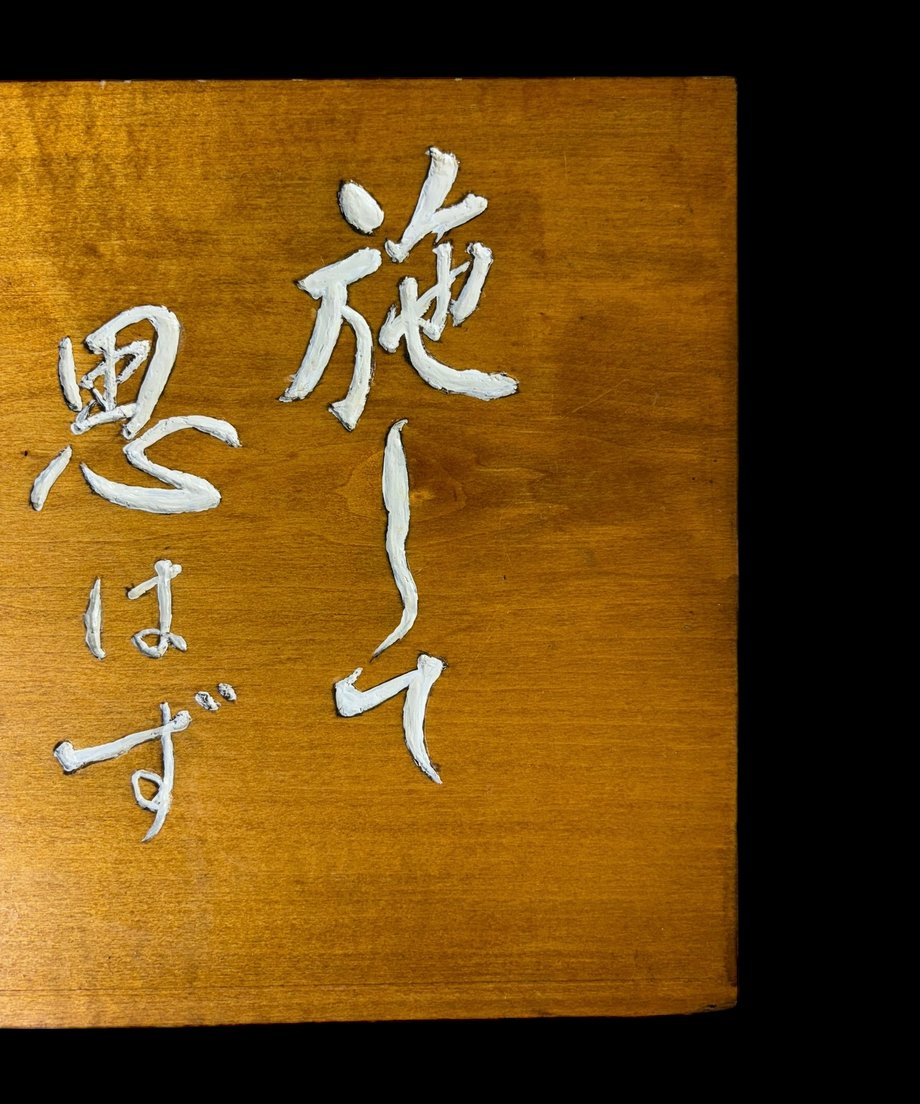 施して
思はず